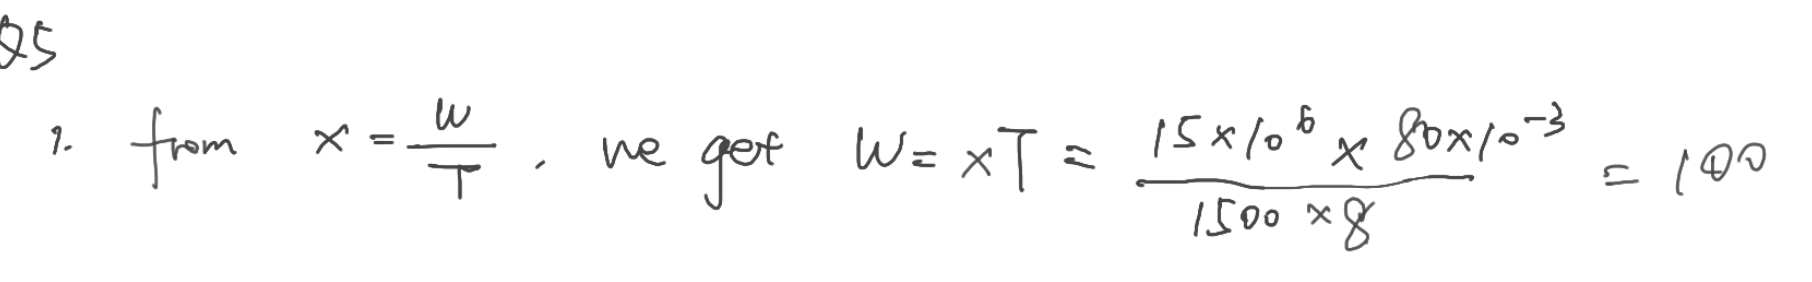 Q5
1. from x = W/T, we get W = xT = (15×10⁶ × 80×10⁻³)/(1500 × 8) = 100